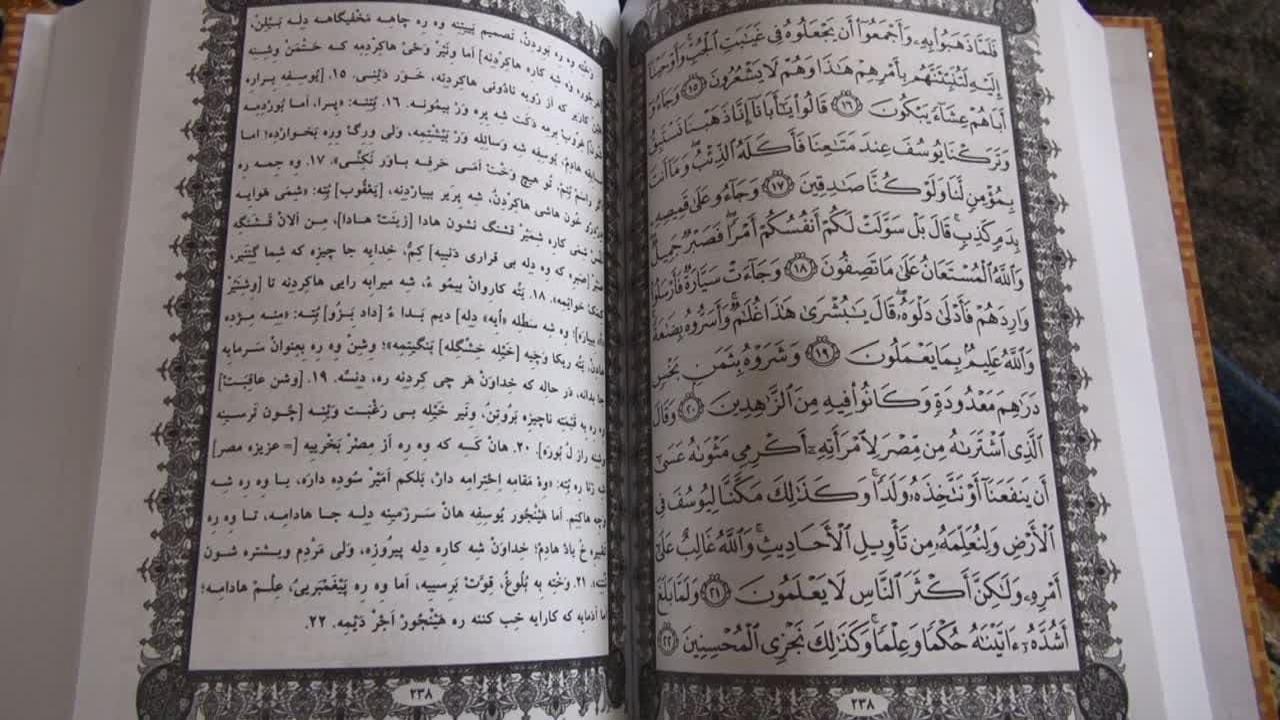 فَلَمَّا ذَهَبُوا۟ بِهِۦ وَأَجْمَعُوٓا۟ أَن يَجْعَلُوهُ فِى غَيَٰبَتِ ٱلْجُبِّ وَأَوْحَيْنَآ
إِلَيْهِ لَتُنَبِّئَنَّهُم بِأَمْرِهِمْ هَٰذَا وَهُمْ لَا يَشْعُرُونَ ١٥ وَجَآءُو
أَبَاهُمْ عِشَآءً يَبْكُونَ ١٦ قَالُوا۟ يَٰٓأَبَانَآ إِنَّا ذَهَبْنَا نَسْتَبِقُ
وَتَرَكْنَا يُوسُفَ عِندَ مَتَٰعِنَا فَأَكَلَهُ ٱلذِّئْبُ وَمَآ أَنتَ
بِمُؤْمِنٍ لَّنَا وَلَوْ كُنَّا صَٰدِقِينَ ١٧ وَجَآءُو عَلَىٰ قَمِيصِهِۦ
بِدَمٍ كَذِبٍ قَالَ بَلْ سَوَّلَتْ لَكُمْ أَنفُسُكُمْ أَمْرًا فَصَبْرٌ جَمِيلٌ
وَٱللَّهُ ٱلْمُسْتَعَانُ عَلَىٰ مَا تَصِفُونَ ١٨ وَجَآءَتْ سَيَّارَةٌ فَأَرْسَلُوا۟
وَارِدَهُمْ فَأَدْلَىٰ دَلْوَهُۥ قَالَ يَٰبُشْرَىٰ هَٰذَا غُلَٰمٌ وَأَسَرُّوهُ بِضَٰعَةً
وَٱللَّهُ عَلِيمٌۢ بِمَا يَعْمَلُونَ ١٩ وَشَرَوْهُ بِثَمَنٍۭ بَخْسٍ
دَرَٰهِمَ مَعْدُودَةٍ وَكَانُوا۟ فِيهِ مِنَ ٱلزَّٰهِدِينَ ٢٠ وَقَالَ
ٱلَّذِى ٱشْتَرَىٰهُ مِن مِّصْرَ لِٱمْرَأَتِهِۦٓ أَكْرِمِى مَثْوَىٰهُ عَسَىٰٓ
أَن يَنفَعَنَآ أَوْ نَتَّخِذَهُۥ وَلَدًا وَكَذَٰلِكَ مَكَّنَّا لِيُوسُفَ فِى
ٱلْأَرْضِ وَلِنُعَلِّمَهُۥ مِن تَأْوِيلِ ٱلْأَحَادِيثِ وَٱللَّهُ غَالِبٌ عَلَىٰٓ
أَمْرِهِۦ وَلَٰكِنَّ أَكْثَرَ ٱلنَّاسِ لَا يَعْلَمُونَ ٢١ وَلَمَّا بَلَغَ
أَشُدَّهُۥٓ ءَاتَيْنَٰهُ حُكْمًا وَعِلْمًا وَكَذَٰلِكَ نَجْزِى ٱلْمُحْسِنِينَ ٢٢
٢٣٨
وه ره بوردن، تصمیم بَیتِنه وه ره چاهِه مَخفیگاهه دِله بَیلِن،
وه شه کاره هاکِردِنه] اما وِنَیر وَحیْ هاکِردِمِه که حَتمَن وِشِنِه
کاریر که از رُویِه نادُونی هاکِردِنه، خَوَر دَینی. ١٥. [یُوسِفِه بِرارِه
غروب بِرمه دَکِت شه پِیره وَرْ بیمُونِه. ١٦. بُتِنِه: «پِرا، اَما بُوردِمِه
هادِم، یُوسِفِه شه وَسائِلِه وَرْ بَیشتِمِه، وَلی وِرگا وِرِه بَخوارْدِه؛ اما
راسْ بَئِم، تُو هیچ وَخْت اَمِی حَرفِه باوَر نَکِنّی». ١٧. وه جِمِه ره
خُون هاشی هاکِردِن، شه پِریَر بییاردِنِه، [یَعْقُوب] بُتِه: «شِمی هَوایِه
شِمِی کاره شِمِیْر قِشنگ نشون هادا [زینَت هادا]، مِن اَلان قَشَنگِه
[صَبرِه که وه دِله بی قراری دَنیِه] کِمّ، خِدایِه جا چیزِه که شما گِنِّنی،
کُمَک خوائِمِه». ١٨. یَتّه کاروان بیمُو ءُ، شه میرابِه راهی هاکِردِنه تا [وِشنِیْر
بیاره]؛ وه شه سَطلِه «اُیِه» دِله] دیم بَدا ءُ [داد بَزُو] بُتِه: «مِنِه مِژده
هادِن، یَتّه ریکا وَچِیه [خَیلِه خِشگِلِه] بَنگیتِمِه»؛ وِشِن وه ره بِعِنوان سَرمایِه
بِدانِه، دَر حاله که خِداوَن هَر چی کِردِنه ره، دِنِسّه. ١٩. [وِشِن عاقِبَت]
ره به قِیمَتِه ناچیزه بَروتِن، وِنَیر خَیلِه بی رَغْبَت وَینِه [چُون تَرسینِه
راز لُ بُورِه]. ٢٠. هانْ کَسِه که وه ره از مِصْرْ بَخریِیِه [= عَزیزِه مصر]
زِنا ره بُتِه: «وِهْ مَقامِه اِحتِرامِه دارْ، بَلکِم اَمیْرْ سُودِه دارِه، یا وه ره شه
وَچِه هاکِنِم. اما هَینجُور یُوسِفِه هانْ سَرزِمینِه دِلِه جا هادامِه، تا وه ره
خُ یاد هادِم؛ خِداوَن شه کاره دِله پیروزِه، وَلی مَردِم ویشتِره شون
٢١. وَختِه به بُلُوغُ، قِوَّتْ بَرِسییِه، اما وه ره پَیغَمبَریی، عِلْم هادامِه؛
اما آدمایِه که کارایِه خِب کِنِنِه ره هَینجُور اَجْر دَیمِه. ٢٢.
٢٣٨